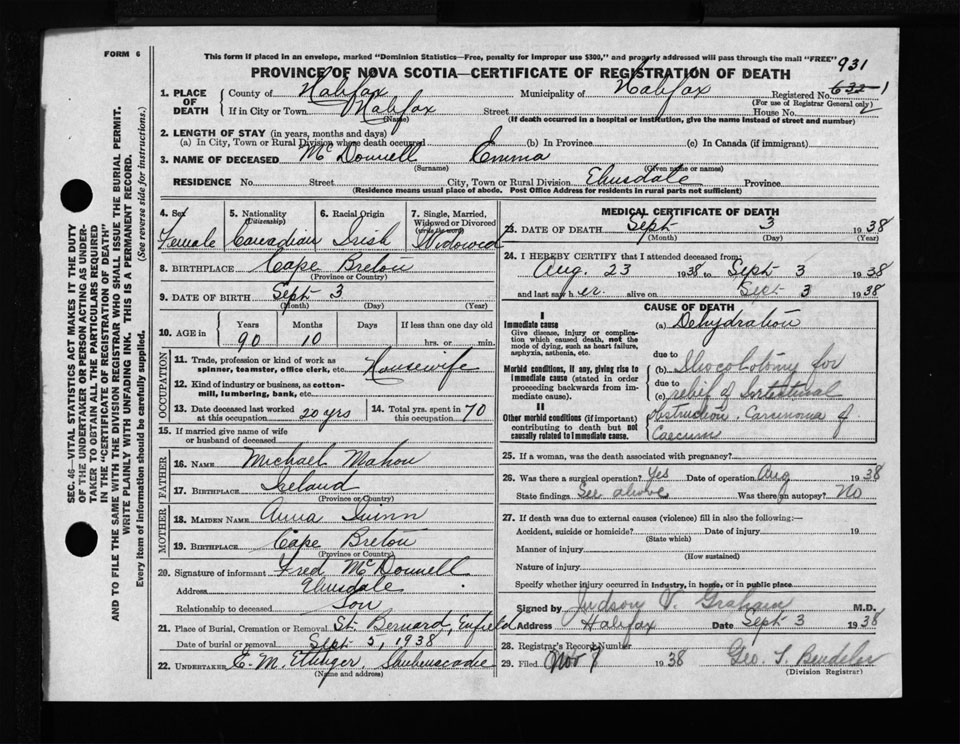 FORM 6
This form if placed in an envelope, marked "Dominion Statistics—Free, penalty for improper use $300," and properly addressed will pass through the mail "FREE"
931
PROVINCE OF NOVA SCOTIA—CERTIFICATE OF REGISTRATION OF DEATH
1. PLACE OF DEATH
County of Halifax Municipality of Halifax Registered No.
(For use of Registrar General only)
If in City or Town Halifax Street House No.
(Name) (If death occurred in a hospital or institution, give the name instead of street and number)
2. LENGTH OF STAY (in years, months and days)
(a) In City, Town or Rural Division where death occurred (b) In Province (c) In Canada (if immigrant)
3. NAME OF DECEASED McDonnell Emma
(Surname) (Given name or names)
RESIDENCE No. Street City, Town or Rural Division Elmsdale Province
(Residence means usual place of abode. Post Office Address for residents in rural parts not sufficient)
4. Sex Female
5. Nationality (Citizenship) Canadian
6. Racial Origin Irish
7. Single, Married, Widowed or Divorced (write the word) Widowed
8. BIRTHPLACE Cape Breton
(Province or Country)
9. DATE OF BIRTH Sept 3
(Month) (Day) (Year)
10. AGE in Years Months Days If less than one day old
90 10 hrs. or min.
OCCUPATION
11. Trade, profession or kind of work as spinner, teamster, office clerk, etc. Housewife
12. Kind of industry or business, as cotton-mill, lumbering, bank, etc.
13. Date deceased last worked at this occupation 20 yrs
14. Total yrs. spent in this occupation 70
15. If married give name of wife or husband of deceased
FATHER
16. NAME Michael Mahon
17. BIRTHPLACE Ireland
(Province or Country)
MOTHER
18. MAIDEN NAME Anna Quinn
19. BIRTHPLACE Cape Breton
(Province or Country)
20. Signature of informant Fred McDonnell
Address Elmsdale
Relationship to deceased Son
21. Place of Burial, Cremation or Removal St. Bernard, Enfield
Date of burial or removal Sept 5, 1938
22. UNDERTAKER E. M. Ettinger, Shubenacadie
(Name and address)
MEDICAL CERTIFICATE OF DEATH
23. DATE OF DEATH Sept 3 1938
(Month) (Day) (Year)
24. I HEREBY CERTIFY that I attended deceased from:
Aug. 23 1938 to Sept 3 1938
and last saw her alive on Sept 3 1938
CAUSE OF DEATH
I
Immediate cause
Give disease, injury or complication which caused death, not the mode of dying, such as heart failure, asphyxia, asthenia, etc.
(a) Dehydration
due to
Morbid conditions, if any, giving rise to immediate cause (stated in order proceeding backwards from immediate cause).
(b) for
due to
(c) relief of Intestinal
II
Other morbid conditions (if important) contributing to death but not causally related to immediate cause.
obstruction. Carcinoma of
Caecum
25. If a woman, was the death associated with pregnancy?
26. Was there a surgical operation? Yes Date of operation Aug 1938
State findings See above Was there an autopsy? No
27. If death was due to external causes (violence) fill in also the following:—
Accident, suicide or homicide? Date of injury 19
(State which)
Manner of injury
(How sustained)
Nature of injury
Specify whether injury occurred in industry, in home, or in public place
Signed by Judson V. Graham M.D.
Address Halifax Date Sept 3 1938
28. Registrar's Record Number
29. Filed Nov 7 1938
(Division Registrar)
SEC. 46—VITAL STATISTICS ACT MAKES IT THE DUTY
OF THE UNDERTAKER OR PERSON ACTING AS UNDER-
TAKER TO OBTAIN ALL THE PARTICULARS REQUIRED
IN THE "CERTIFICATE OF REGISTRATION OF DEATH"
AND TO FILE THE SAME WITH THE DIVISION REGISTRAR WHO SHALL ISSUE THE BURIAL PERMIT.
WRITE PLAINLY WITH UNFADING INK. THIS IS A PERMANENT RECORD.
Every item of information should be carefully supplied. (See reverse side for instructions.)